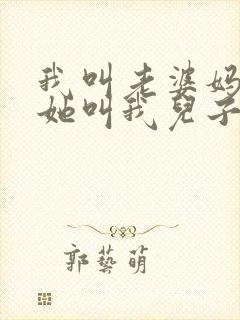 我叫老婆妈
她叫我儿子
郭艺萌